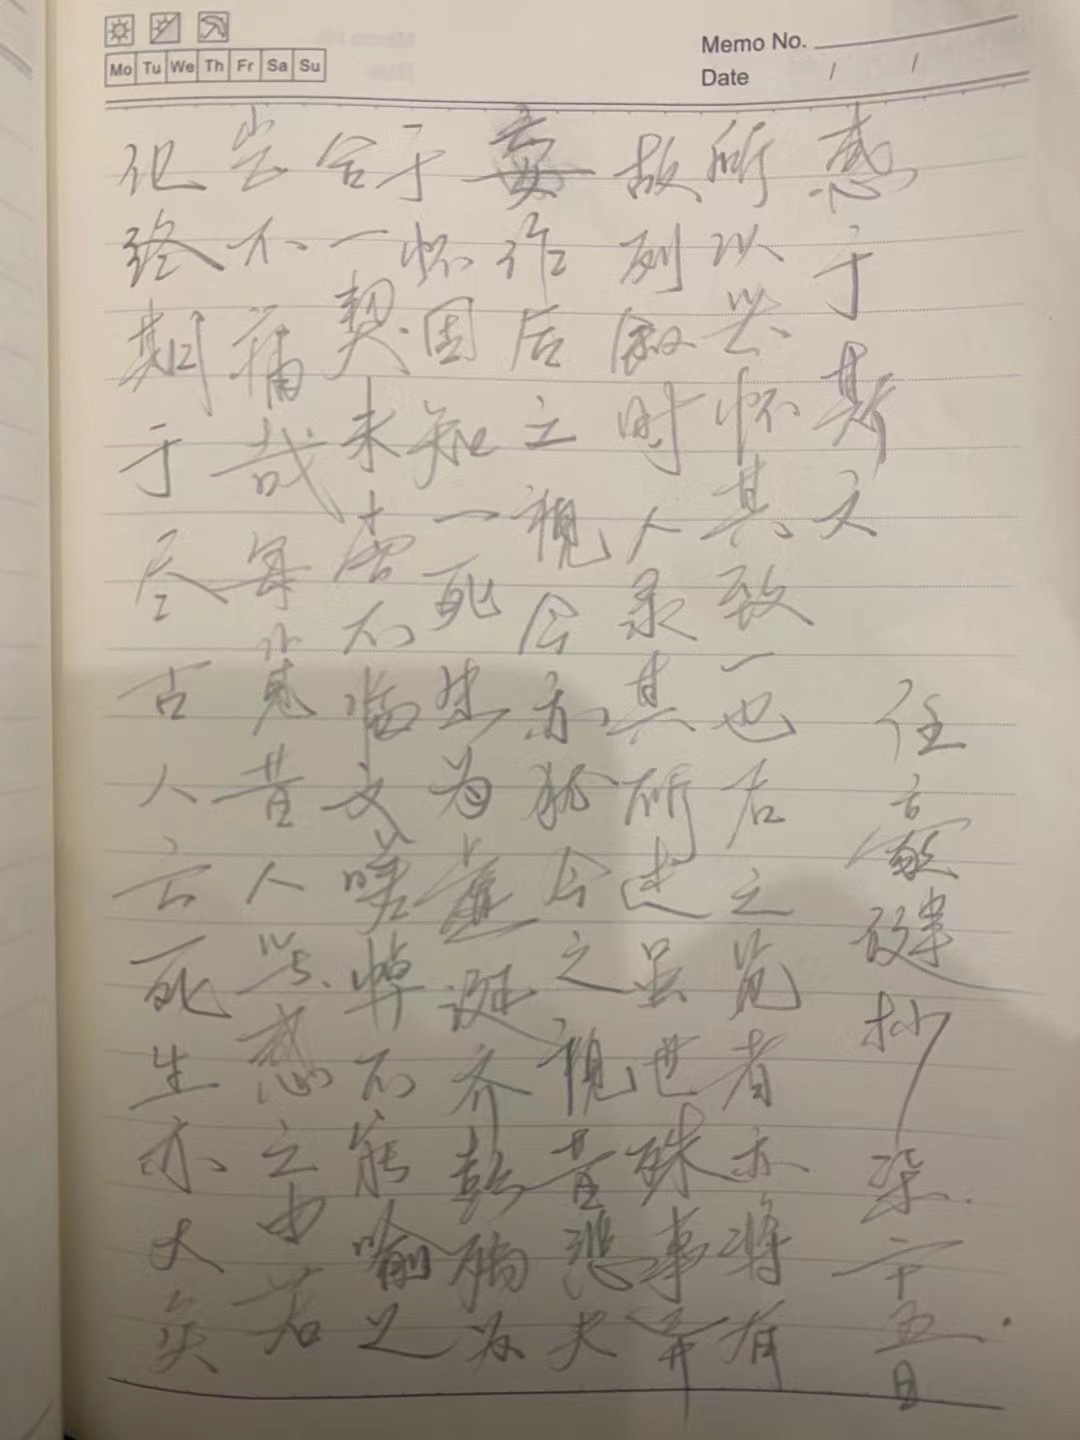 Memo No.
Date / /
Mo Tu We Th Fr Sa Su
化终期于尽古人云死生亦大矣
岂不痛哉每览昔人兴感之由若
合一契未尝不临文嗟悼不能喻之
于怀固知一死生为虚诞齐彭殇为
妄作后之视今亦犹今之视昔悲夫
故列叙时人录其所述虽世殊事异
所以兴怀其致一也后之览者亦将有
感于斯文
任 抄 五日